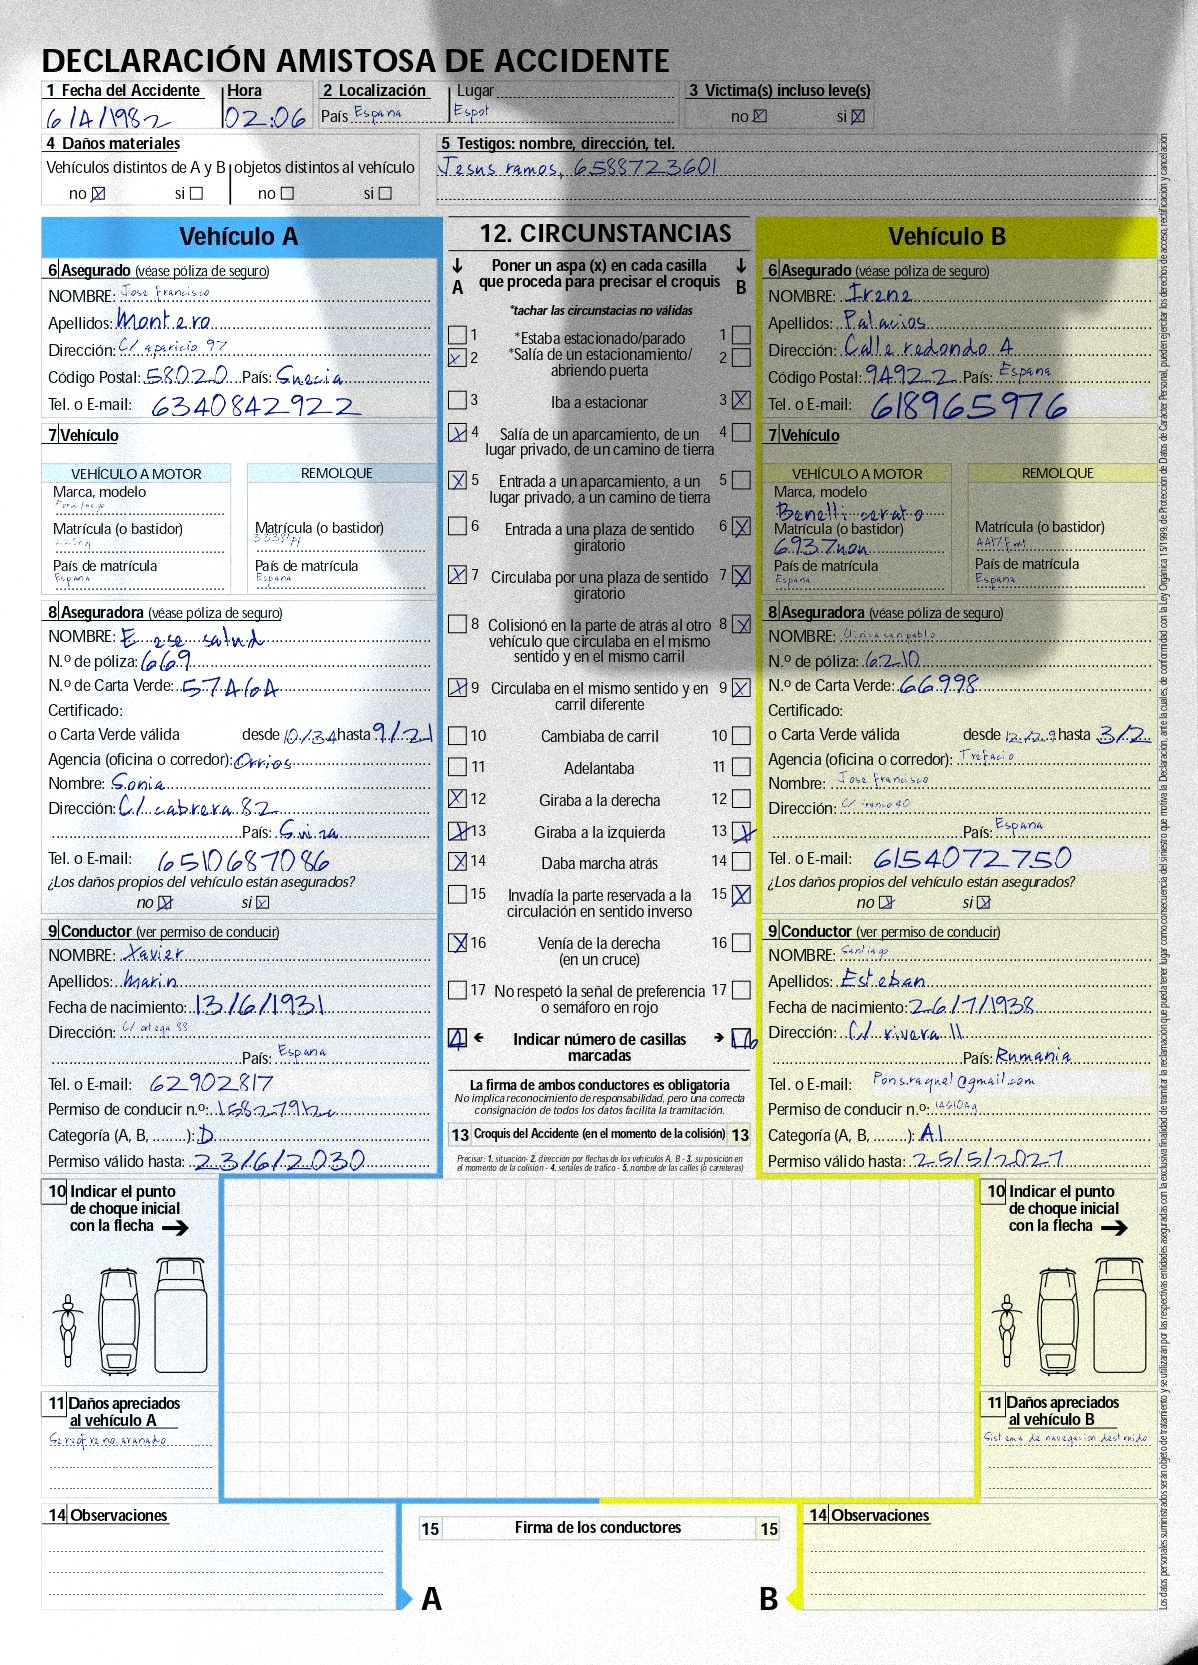 DECLARACIÓN AMISTOSA DE ACCIDENTE
1 Fecha del Accidente Hora 2 Localización Lugar 3 Victima(s) incluso leve(s)
6/4/1982 02:06 País Espana Espot no si
4 Daños materiales 5 Testigos: nombre, dirección, tel.
Vehículos distintos de A y B objetos distintos al vehículo Jesus ramos, 6588723601
no si no si
Vehículo A
6 Asegurado (véase póliza de seguro)
NOMBRE: Jose francisco
Apellidos: Montero
Dirección: C/ aparicio 97
Código Postal: 58020 País: Suecia
Tel. o E-mail: 6340842922
7 Vehículo
VEHÍCULO A MOTOR REMOLQUE
Marca, modelo
Matrícula (o bastidor) Matrícula (o bastidor)
País de matrícula País de matrícula
Espana Espana
8 Aseguradora (véase póliza de seguro)
NOMBRE: E ese salud
N.º de póliza: 669
N.º de Carta Verde: 57464
Certificado:
o Carta Verde válida desde 10/34 hasta 9/21
Agencia (oficina o corredor): Orrios
Nombre: Sonia
Dirección: C/ cabrera 82
País: Suiza
Tel. o E-mail: 6510687086
¿Los daños propios del vehículo están asegurados?
no si
9 Conductor (ver permiso de conducir)
NOMBRE: Xavier
Apellidos: Marin
Fecha de nacimiento: 13/6/1931
Dirección: C/ ortega 88
País: Espana
Tel. o E-mail: 62902817
Permiso de conducir n.º:
Categoría (A, B, ........): D
Permiso válido hasta: 23/6/2030
12. CIRCUNSTANCIAS
A Poner un aspa (x) en cada casilla que proceda para precisar el croquis B
*tachar las circunstacias no válidas
1 *Estaba estacionado/parado 1
2 *Salía de un estacionamiento/ 2
abriendo puerta
3 Iba a estacionar 3
4 Salía de un aparcamiento, de un 4
lugar privado, de un camino de tierra
5 Entrada a un aparcamiento, a un 5
lugar privado, a un camino de tierra
6 Entrada a una plaza de sentido 6
giratorio
7 Circulaba por una plaza de sentido 7
giratorio
8 Colisionó en la parte de atrás al otro 8
vehículo que circulaba en el mismo
sentido y en el mismo carril
9 Circulaba en el mismo sentido y en 9
carril diferente
10 Cambiaba de carril 10
11 Adelantaba 11
12 Giraba a la derecha 12
13 Giraba a la izquierda 13
14 Daba marcha atrás 14
15 Invadía la parte reservada a la 15
circulación en sentido inverso
16 Venía de la derecha 16
(en un cruce)
17 No respetó la señal de preferencia 17
o semáforo en rojo
4 Indicar número de casillas 16
marcadas
La firma de ambos conductores es obligatoria
No implica reconocimiento de responsabilidad, pero una correcta
consignación de todos los datos facilita la tramitación.
13 Croquis del Accidente (en el momento de la colisión) 13
Precisar: 1. situación- 2. dirección por flechas de los vehículos A, B - 3. su posición en
el momento de la colisión - 4. señales de tráfico - 5. nombre de las calles (o carreteras)
Vehículo B
6 Asegurado (véase póliza de seguro)
NOMBRE: Irene
Apellidos: Palacios
Dirección: Calle redondo 4
Código Postal: 94922 País: Espana
Tel. o E-mail: 618965976
7 Vehículo
VEHÍCULO A MOTOR REMOLQUE
Marca, modelo
Benelli cerato
Matrícula (o bastidor) Matrícula (o bastidor)
6937nan
País de matrícula País de matrícula
Espana Espana
8 Aseguradora (véase póliza de seguro)
NOMBRE: Clinica san pablo
N.º de póliza: 6210
N.º de Carta Verde: 66998
Certificado:
o Carta Verde válida desde 12/29 hasta 3/2
Agencia (oficina o corredor): Trefacio
Nombre: Jose francisco
Dirección: C/ franco 40
País: Espana
Tel. o E-mail: 6154072750
¿Los daños propios del vehículo están asegurados?
no si
9 Conductor (ver permiso de conducir)
NOMBRE: Santiago
Apellidos: Esteban
Fecha de nacimiento: 26/7/1938
Dirección: C/ rivera 11
País: Rumania
Tel. o E-mail: Pons.raquel@gmail.com
Permiso de conducir n.º:
Categoría (A, B, ........): A1
Permiso válido hasta: 25/5/2027
10 Indicar el punto
de choque inicial
con la flecha
11 Daños apreciados
al vehículo A
Servofreno aranado
14 Observaciones
10 Indicar el punto
de choque inicial
con la flecha
11 Daños apreciados
al vehículo B
Sistema de navegacion destruido
14 Observaciones
15 Firma de los conductores 15
A B
Los datos personales suministrados serán objeto de tratamiento y se utilizarán por las respectivas entidades aseguradas con la exclusiva finalidad de tramitar la reclamación que pueda tener lugar como consecuencia del siniestro que motiva la Declaración, ante la cuales, de conformidad con la Ley Orgánica 15/1999, de Protección de Datos de Carácter Personal, pueden ejercitar los derechos de acceso, rectificación y cancelación